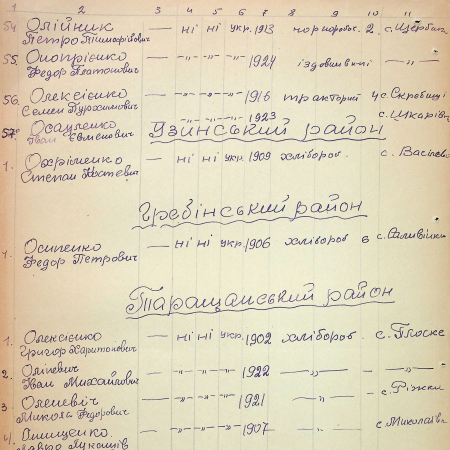 1 2 3 4 5 6 7 8 9 10 11
54 Олійник — ні ні укр. 1913 чорнороб. 2 с. Щербаки
Петро Тимофійович
55. Онопрієнко — -"- -"- -"- 1924 їздовий — " —
Федор Платонович
56. Олексієнко — -"- -"- -"- 1916 тракторист 4 с. Скребиші
Семен
57. Осауленко -"- -"- -"- 1923 с. Шкарівка
Іван Євменович
Узинський район
1. Охріменко — ні ні укр. 1909 хлібороб.
Степан
Гребінський район
1. Осипенко — ні ні укр. 1906 хлібороб 6
Федор Петрович
Таращанський район
1. Олексієнко — ні ні укр. 1902 хлібороб. с. Плоске
Григор Харитонович
2. Оліневич — -"- -"- -"- 1922 — " — — " —
Іван Михайлович
3. Оленевіч — -"- -"- -"- 1921 — " — с. Ріжки
Микола Федорович
4. Онищенко — -"- -"- -"- 1907 — " — с. Миколаївка